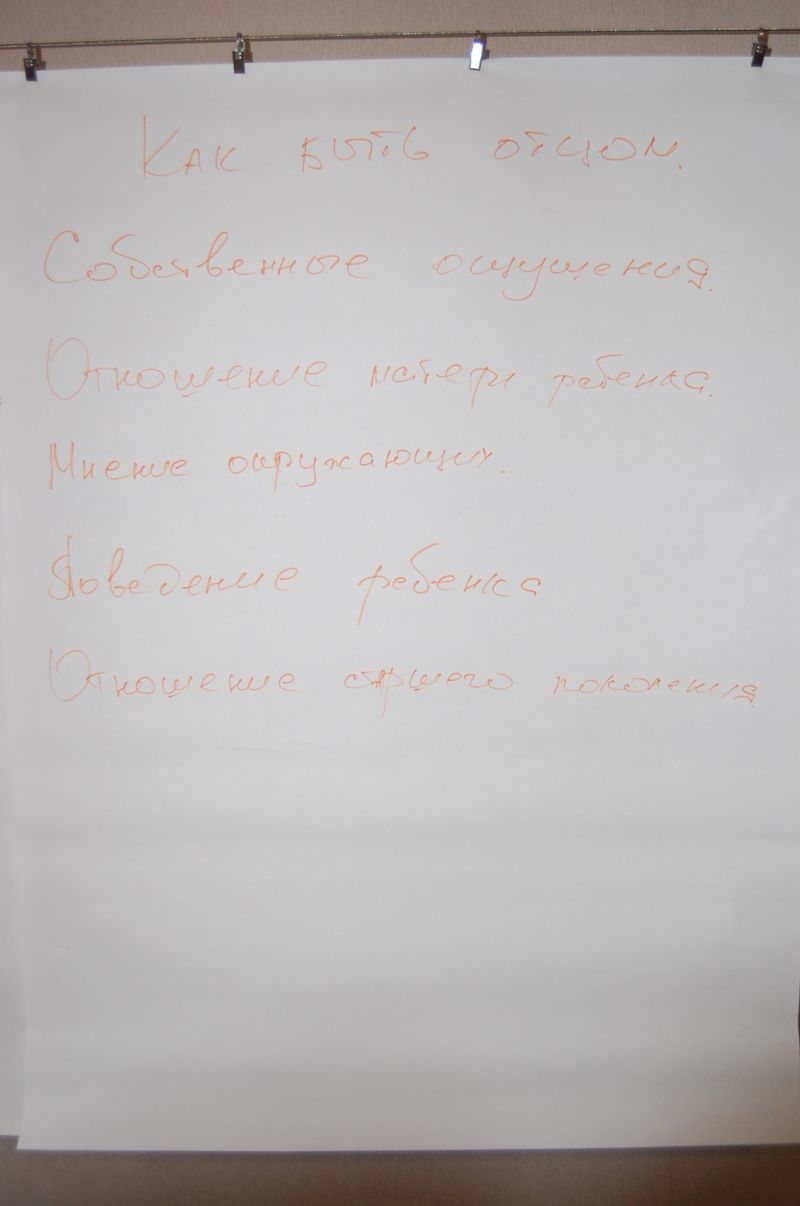 Как быть отцом.
Собственные ощущения.
Отношение матери ребенка.
Мнение окружающих.
Поведение ребенка
Отношение старшего поколения.